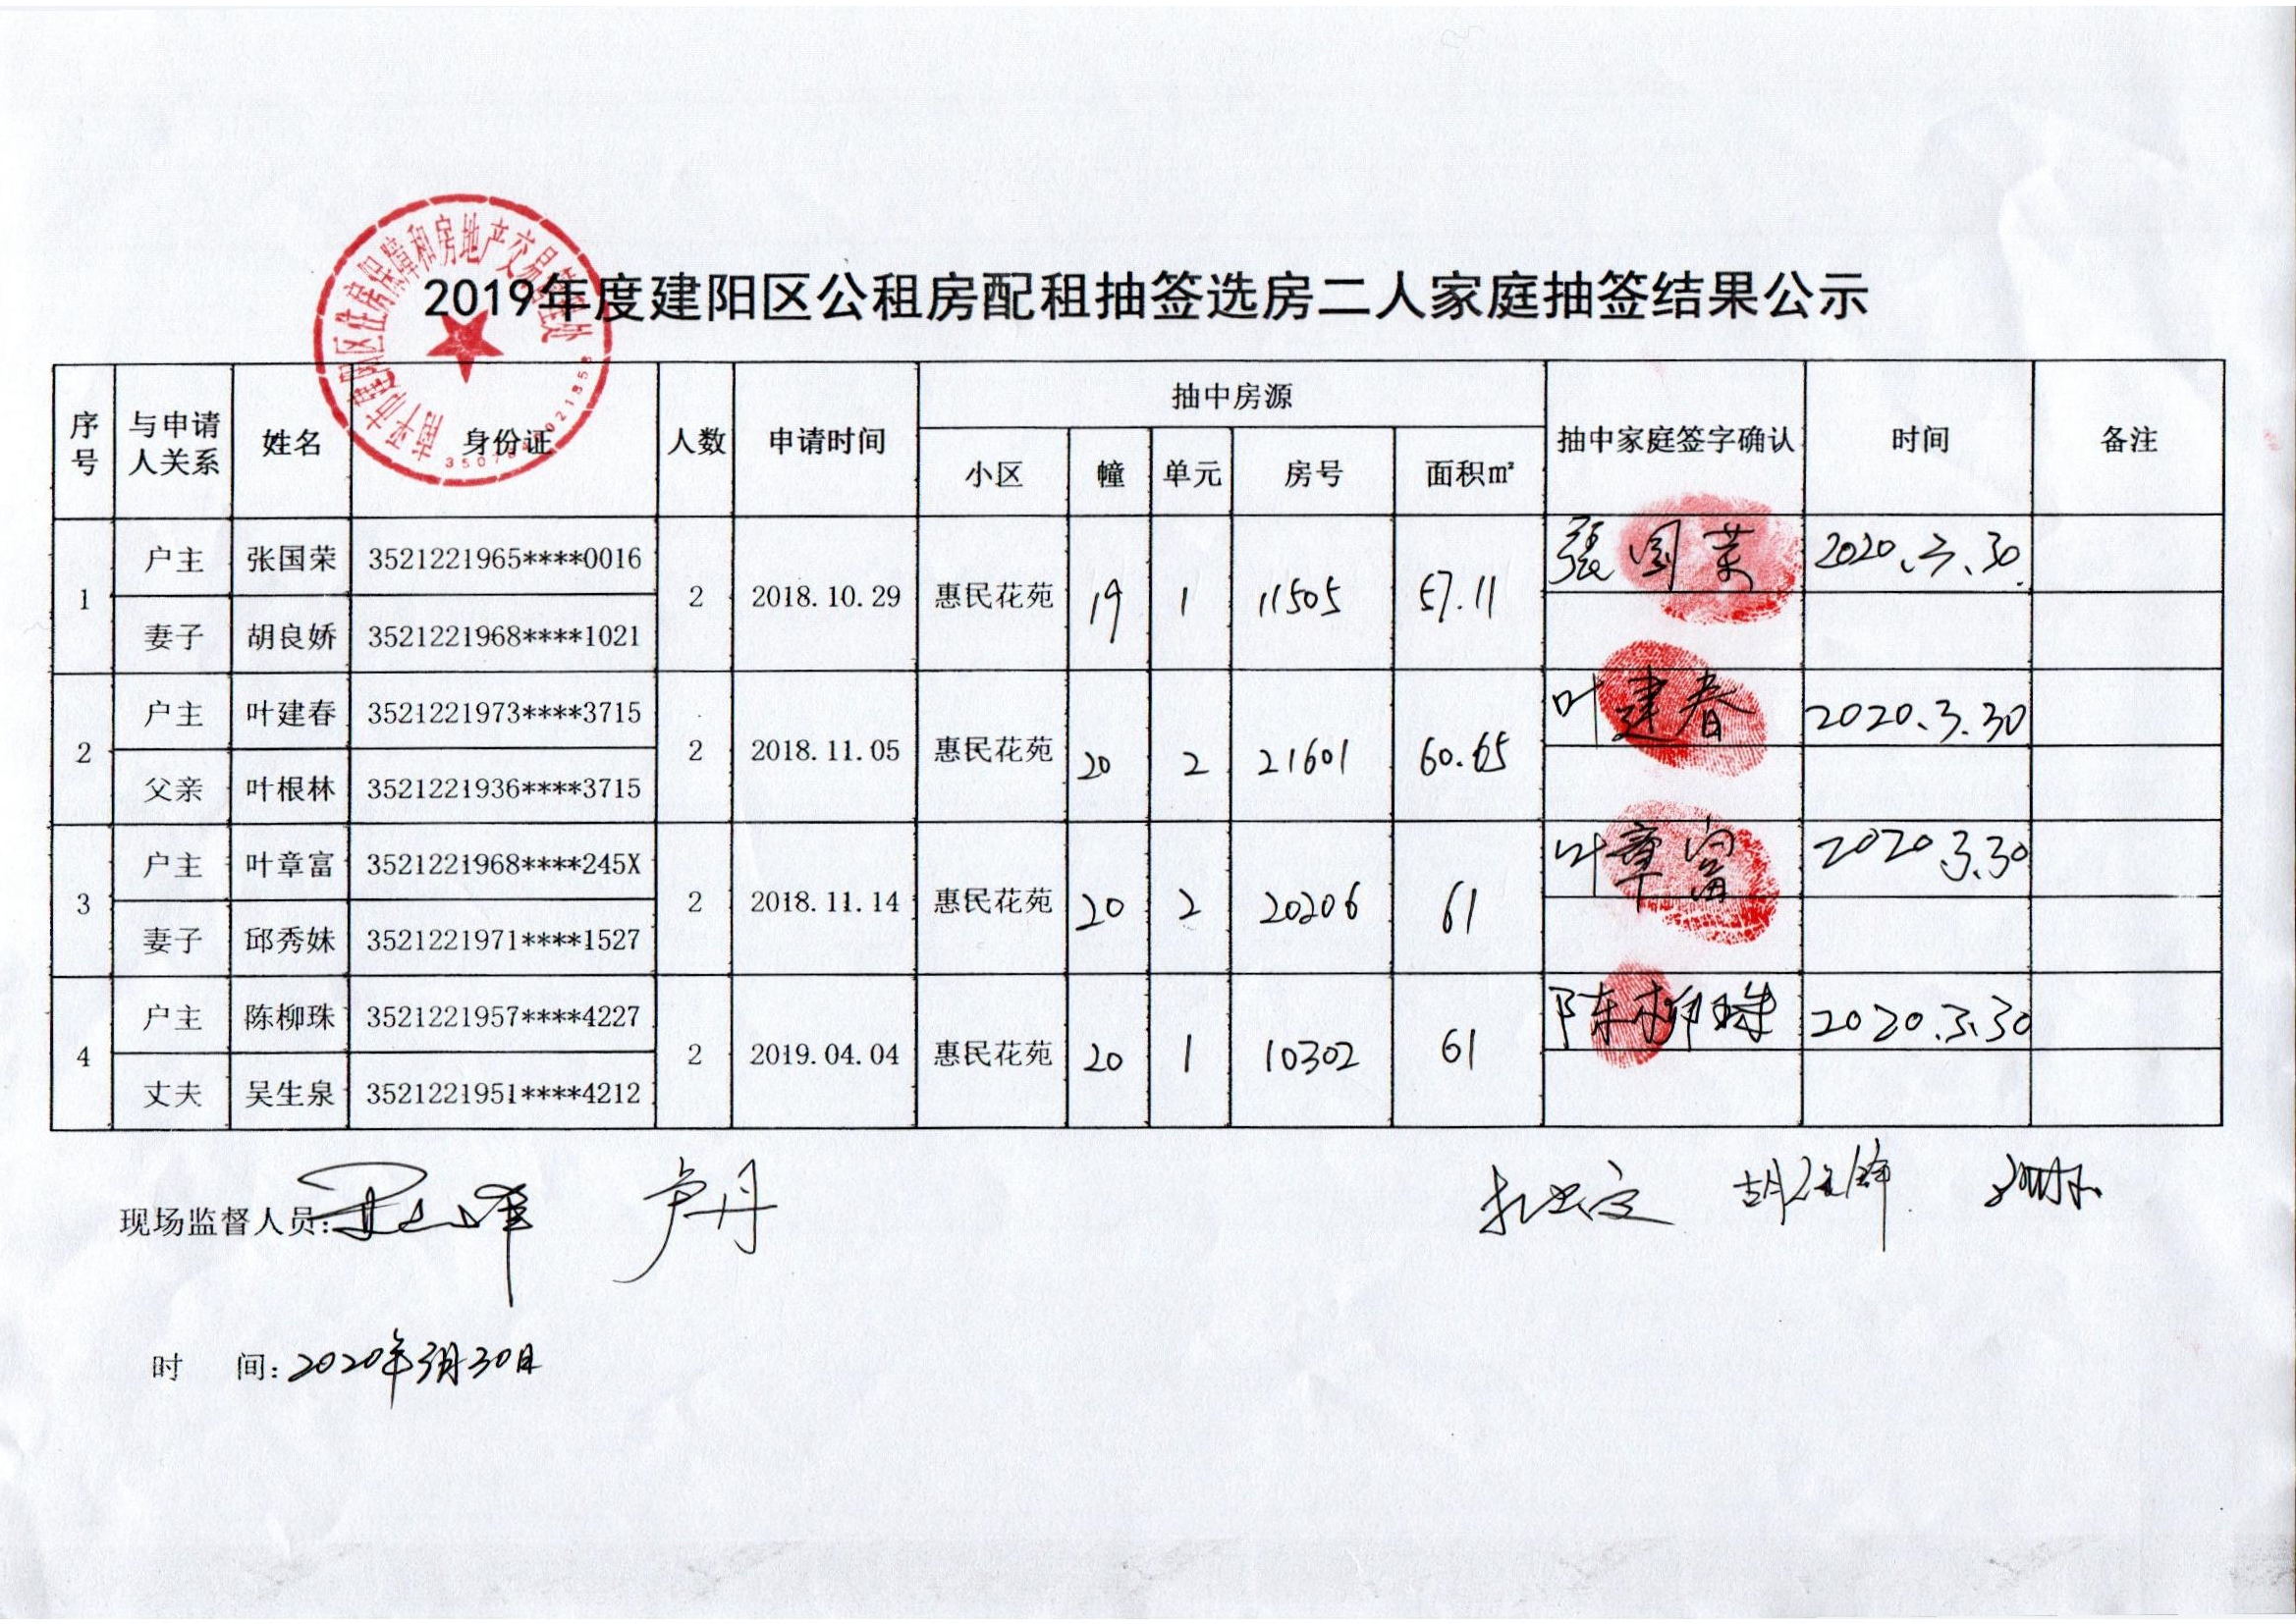 南平市建阳区住房保障和房地产交易管理处
2019年度建阳区公租房配租抽签选房二人家庭抽签结果公示
序号 与申请人关系 姓名 身份证 人数 申请时间 抽中房源 抽中家庭签字确认 时间 备注
小区 幢 单元 房号 面积㎡
1 户主 张国荣 3521221965****0016 2 2018.10.29 惠民花苑 19 1 11505 57.11 張国荣 2020.3.30.
妻子 胡良娇 3521221968****1021
2 户主 叶建春 3521221973****3715 2 2018.11.05 惠民花苑 20 2 21601 60.65 叶建春 2020.3.30
父亲 叶根林 3521221936****3715
3 户主 叶章富 3521221968****245X 2 2018.11.14 惠民花苑 20 2 20206 61 叶章富 2020.3.30
妻子 邱秀妹 3521221971****1527
4 户主 陈柳珠 3521221957****4227 2 2019.04.04 惠民花苑 20 1 10302 61 陈柳珠 2020.3.30
丈夫 吴生泉 3521221951****4212
现场监督人员: 卢丹
时 间: 2020年3月30日